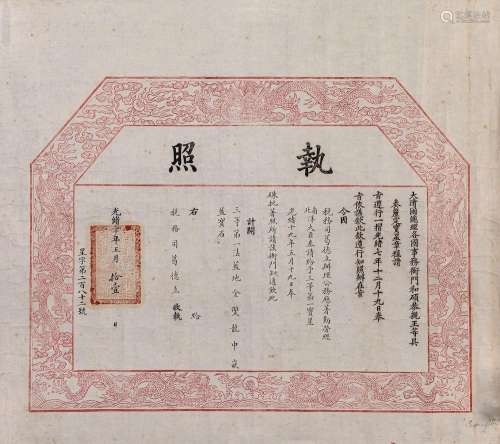 執照
大清國總理各國事務衙門和碩恭親王等具
奏釐定寶星章程請
旨遵行一摺光緒七年十二月十九日奉
旨依議欽此欽遵行知照辦在案
今因
稅務司葛德立辦理公務應著勤勞經
南洋大臣奏請給予三等第一寶星
北
光緒十九年五月十九日奉
硃批著照所請該衙門知道欽此
計開
三等第一法藍地金雙龍中嵌
藍寶石
右給
稅務司葛德立收執
光緒 年五月 拾壹 日
星字第二百八十二號